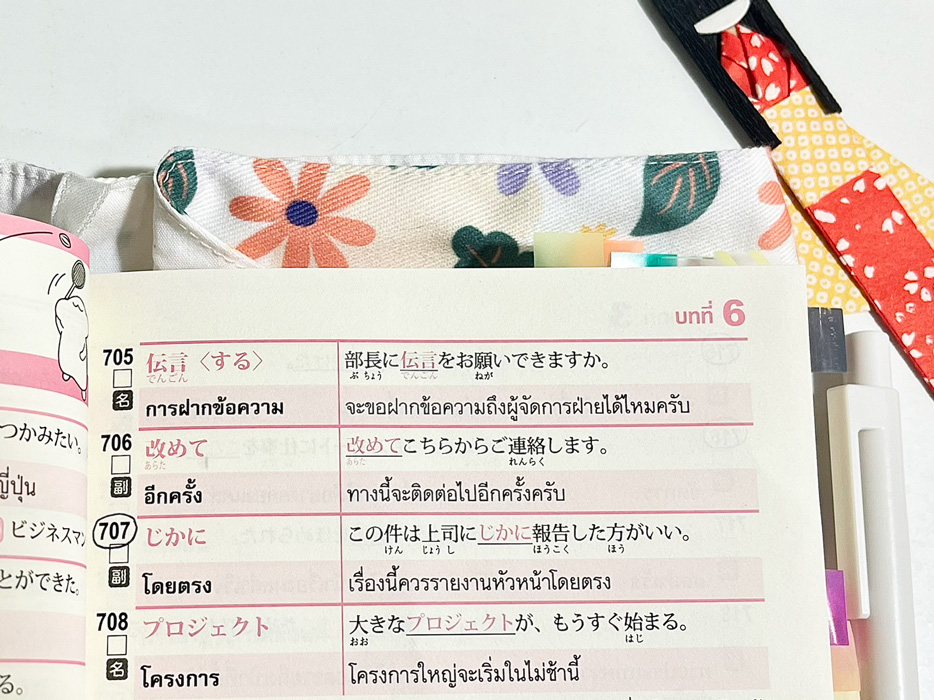 บทที่ 6
705 伝言〈する〉 部長に伝言をお願いできますか。
でんごん ぶ ちょう でんごん ねが
名 การฝากข้อความ จะขอฝากข้อความถึงผู้จัดการฝ่ายได้ไหมครับ
706 改めて 改めてこちらからご連絡します。
あらた あらた れんらく
副 อีกครั้ง ทางนี้จะติดต่อไปอีกครั้งครับ
707 じかに この件は上司にじかに報告した方がいい。
けん じょう し ほうこく ほう
副 โดยตรง เรื่องนี้ควรรายงานหัวหน้าโดยตรง
708 プロジェクト 大きなプロジェクトが、もうすぐ始まる。
おお はじ
名 โครงการ โครงการใหญ่จะเริ่มในไม่ช้านี้
つかみたい。
ญี่ปุ่น
ビジネスマン
とができた。
る。